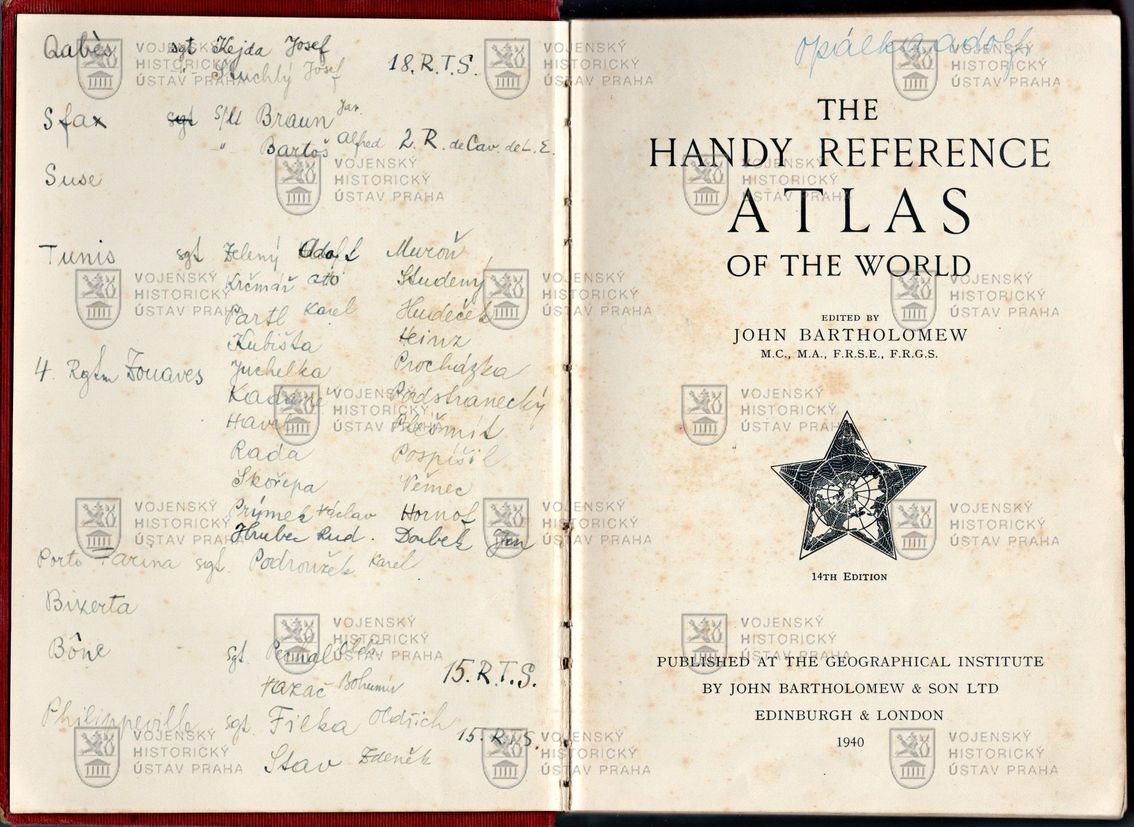 Qabès sgt Kejda Josef
" Stuchlý Josef 18. R.T.S.
Sfax sgt S/lt Braun Jan
" Bartoš Alfred 2. R. de Cav. de L. E.
Suse
Tunis sgt Zelený Adolf Muroň
Krčmář Oto Studený
Partl Karel Hudeček
Kubišta Heinz
4. Rgtm Zouaves Juchelka Procházka
Podstranecký
Rada Pospíšil
Skořepa Němec
Václav Hornof
Hruber Rud. Doubek Jan
Porto Farina sgt. Podroužek Karel
Bizerta
Bône sgt.
Bohumír 15. R.T.S.
Philippeville sgt. Filka Oldřich
15. R.T.S.
Stav Zdeněk
opálka adolf
THE
HANDY REFERENCE
ATLAS
OF THE WORLD
EDITED BY
JOHN BARTHOLOMEW
M.C., M.A., F.R.S.E., F.R.G.S.
14TH EDITION
PUBLISHED AT THE GEOGRAPHICAL INSTITUTE
BY JOHN BARTHOLOMEW & SON LTD
EDINBURGH & LONDON
1940
VOJENSKÝ
HISTORICKÝ
ÚSTAV PRAHA